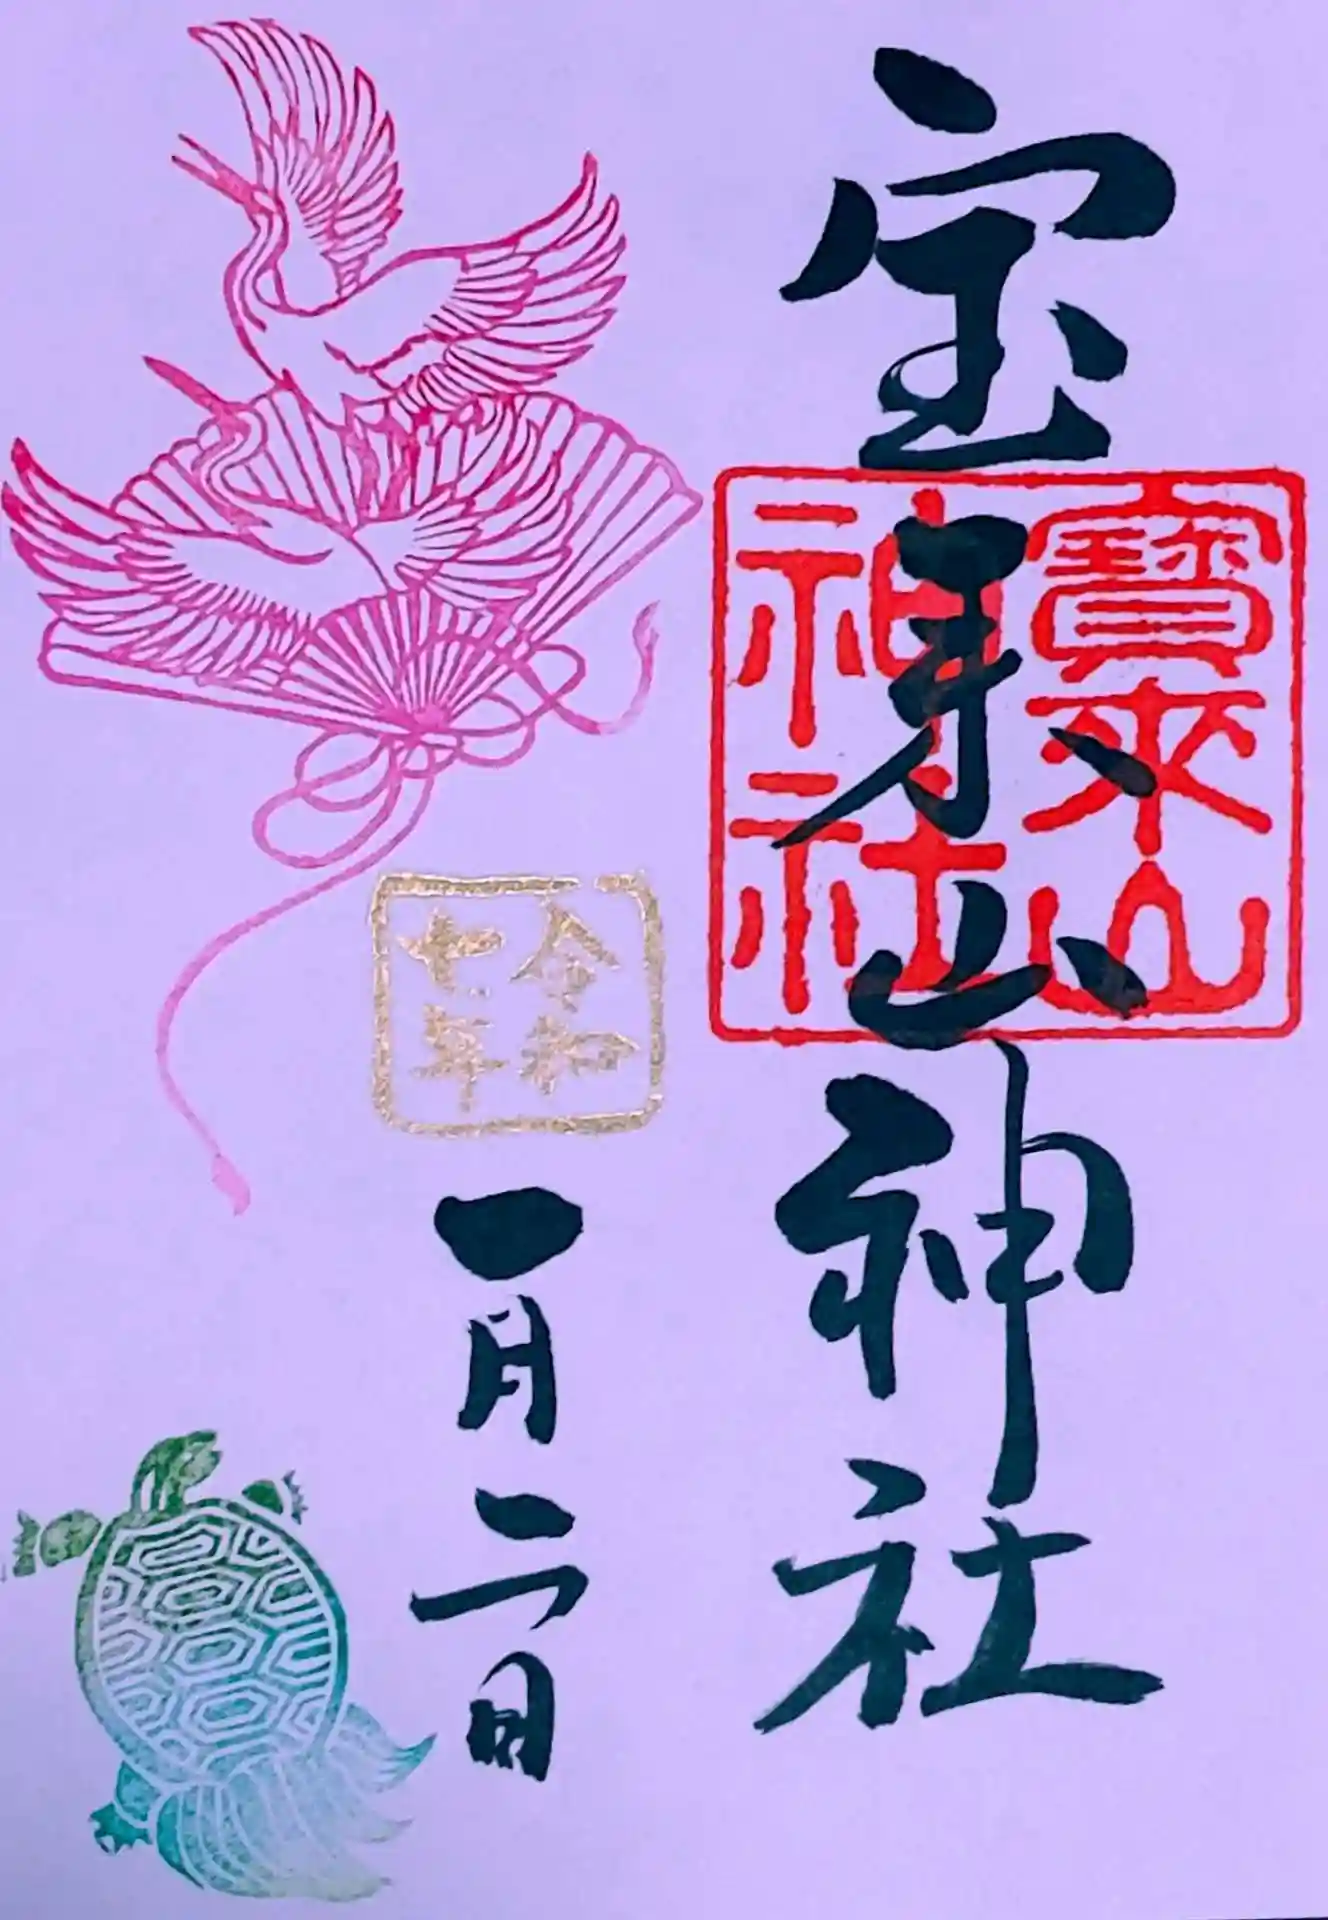 宝来山神社
寶来山
神社
令和
七年
一月二日